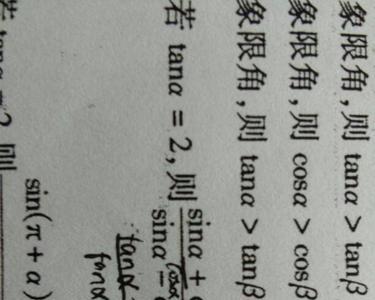 象限角,则 tanα > tanβ
象限角,则 cosα > cosβ
象限角,则 tanα > tanβ
若 tanα = 2,则 sinα +
sinα −
cosα
tanα
tanα
sin(π + α)
若 tanα = 2 则